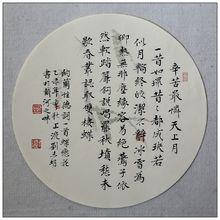 辛苦最憐天上月
一昔如環昔々都成玦若
似月輪終皎潔不辭冰雪為
卿熱無那塵緣容易絕燕子依
然軟踏簾鉤說唱罷秋墳愁未
歇春叢認取雙棲蝶
納蘭性德詞一首蝶戀花
秋上浣劉
書於 河之畔